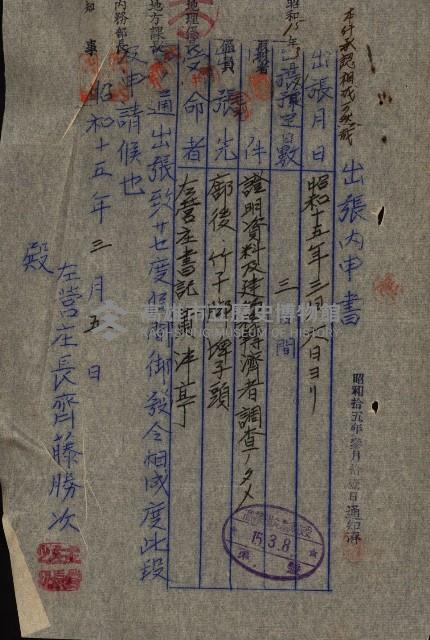 本件承認相成可然哉
出張內申書
昭和拾五年參月 日通知濟
出張月日 昭和十五年三月八日ヨリ
出張豫定日數 三日間
件 證明資料及建築轉濟者調査ノタメ
出張先 廍後、竹子腳、埤子頭
受命者 左營庄書記
通出張致サセ度候間御發令相成度此段
及申請候也
昭和十五年三月五日
左營庄長齊藤勝次
殿
昭和15年
地理係
地方課
內務部長
知事
15.3.8
高雄市立歷史博物館
KAOHSIUNG MUSEUM OF HISTORY